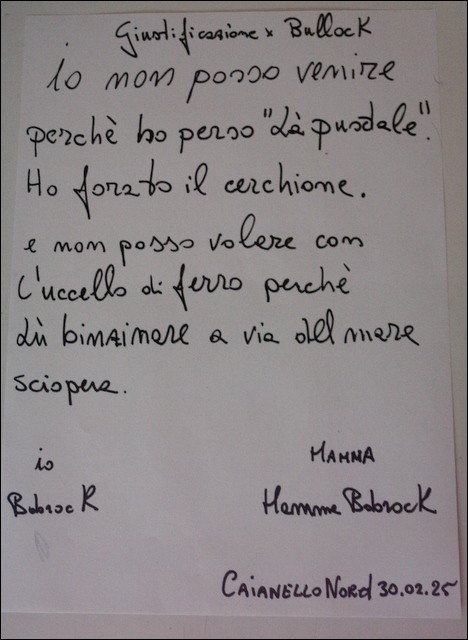 Giustificazione x Bullock
io non posso venire
perchè ho perso "Là pusdale".
Ho forato il cerchione.
e non posso volere con
L'uccello di ferro perchè
Lù binaimare a via dell mare
sciopera.
io
Bobrock
MAMMA
Mamma Bobrock
CAIANELLO NORd 30.02.25